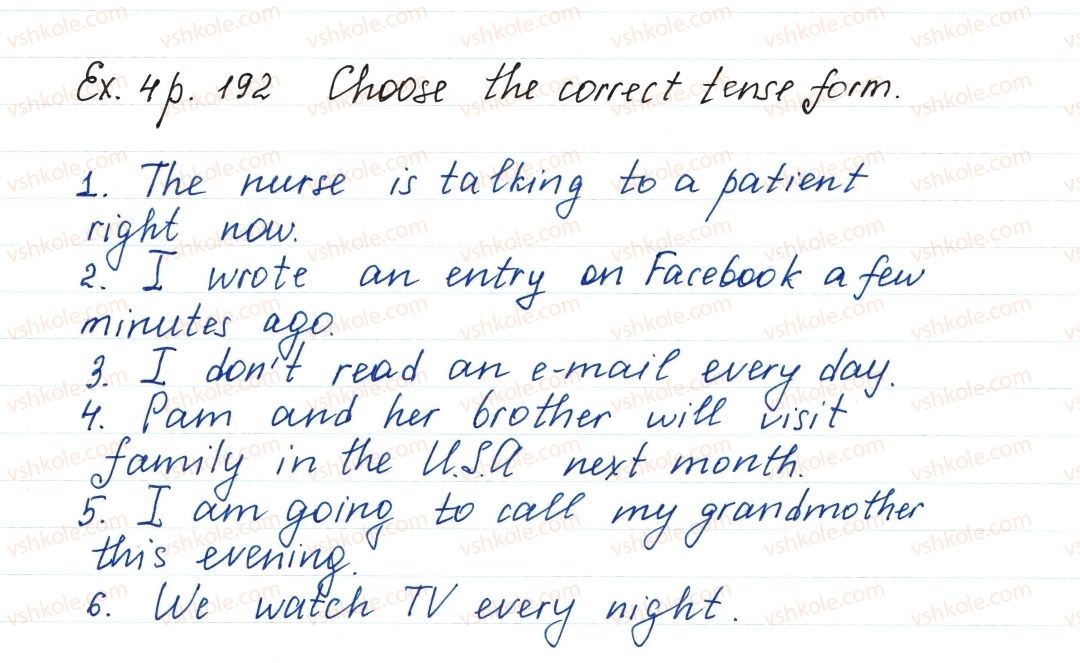 Ex. 4 p. 192 Choose the correct tense form.
1. The nurse is talking to a patient
right now.
2. I wrote an entry on Facebook a few
minutes ago.
3. I don't read an e-mail every day.
4. Pam and her brother will visit
family in the U.S.A next month.
5. I am going to call my grandmother
this evening.
6. We watch TV every night.